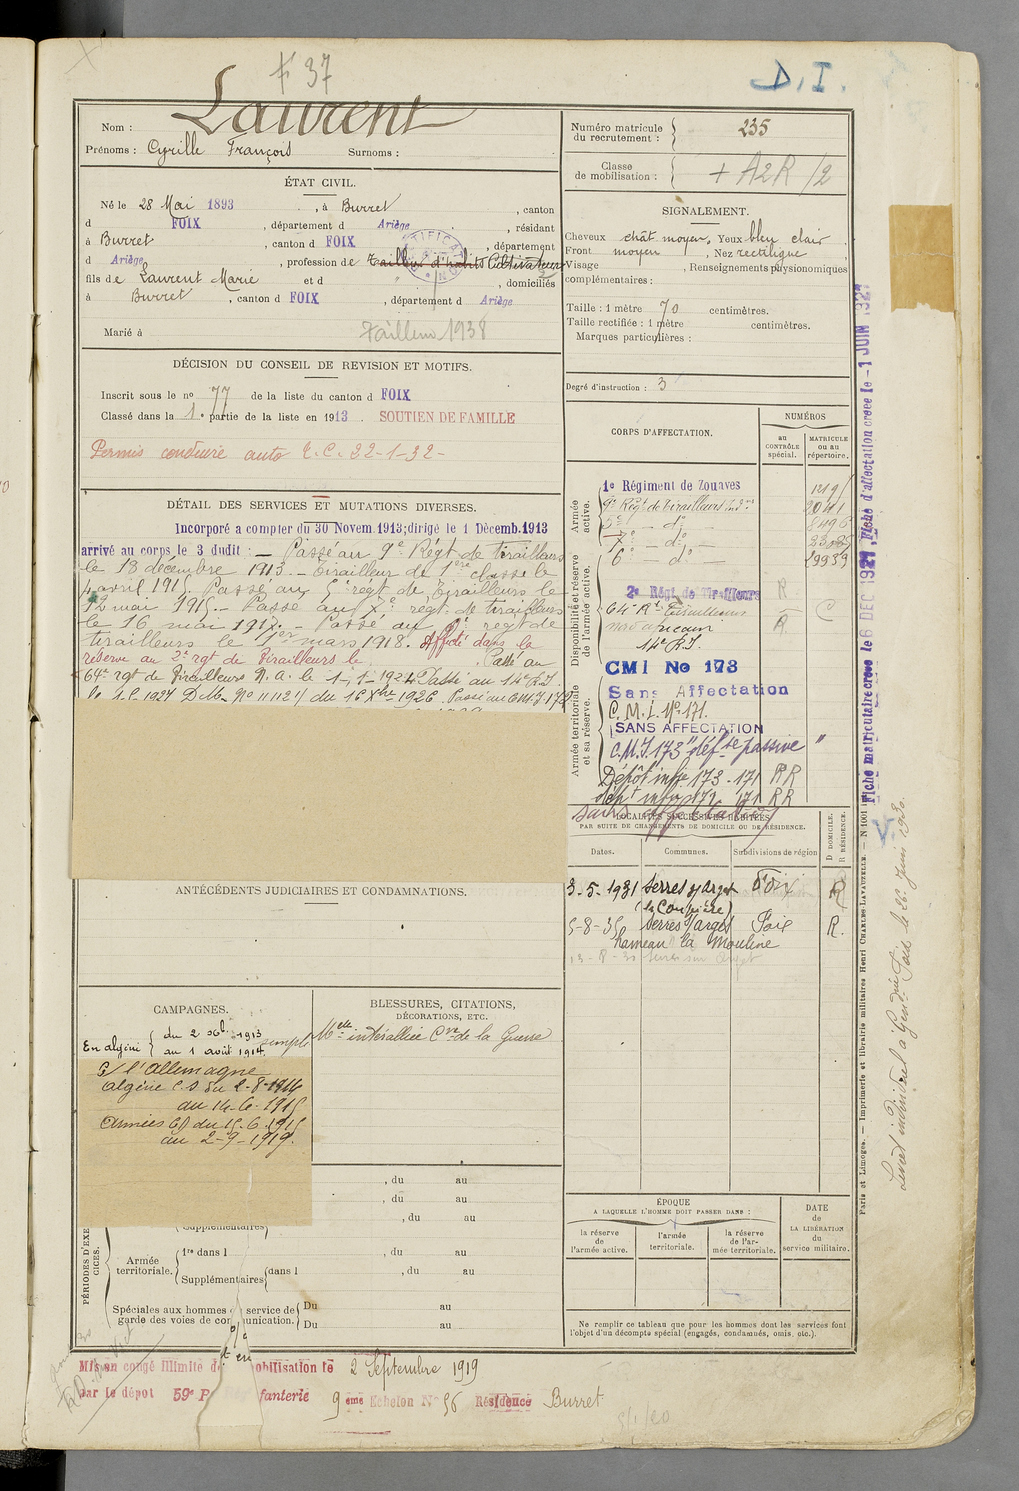 F 37
D. I.
Laurent
Nom :
Prénoms : Cyrille François Surnoms :
Numéro matricule du recrutement : 235
Classe de mobilisation : + A2R /2
ÉTAT CIVIL.
Né le 28 Mai 1893, à Burret, canton
d FOIX, département d Ariège, résidant
à Burret, canton d FOIX, département
d Ariège, profession de Tailleur d'habits Cultivateur
fils de Laurent Marie et d , domiciliés
à Burret, canton d FOIX, département d Ariège
Marié à
Tailleur 1938
SIGNALEMENT.
Cheveux chât moyen, Yeux bleu clair
Front moyen, Nez rectiligne
Visage , Renseignements physionomiques
complémentaires :
Taille : 1 mètre 70 centimètres.
Taille rectifiée : 1 mètre centimètres.
Marques particulières :
Degré d'instruction : 3
DÉCISION DU CONSEIL DE REVISION ET MOTIFS.
Inscrit sous le no 77 de la liste du canton d FOIX
Classé dans la 1e partie de la liste en 1913. SOUTIEN DE FAMILLE
Permis conduire auto T.C. 22-1-32-
DÉTAIL DES SERVICES ET MUTATIONS DIVERSES.
Incorporé a compter du 30 Novem. 1913; dirigé le 1 Décemb. 1913
arrivé au corps le 3 dudit : — Passé au 9e Régt de tirailleurs
le 13 décembre 1913. — Tirailleur de 1ère classe le
4 avril 1915. Passé au 5e regt de Tirailleurs le
12 mai 1915. — Passé au 7e regt. de tirailleurs
le 16 mai 1917. — Passé au regt de
tirailleurs le 1er mars 1918. Affecté dans la
réserve au 2e rgt de Tirailleurs le . Passé au
64e rgt de Tirailleurs N.a. le 1-1-1924 Passé au 14e R.I.
le 1.1.1927 D.M. No 11112 du 16 Xbre 1926. Passé au C.M.I. 173
CORPS D'AFFECTATION.
NUMÉROS
au CONTRÔLE spécial.
MATRICULE ou au répertoire.
Armée active.
1e Régiment de Zouaves
9e Régt de tirailleurs Ind.nes 2041
5e — do — 8496
7e — do —
6e — do — 29939
Disponibilité et réserve de l'armée active.
2e Régt de Tirailleurs R
64e Rt Tirailleurs C
nord africain R.
14e R.I.
Armée territoriale et sa réserve.
CMI No 173
Sans Affectation
C.M.I. No 171.
SANS AFFECTATION
C.M.I. 173 "défse passive"
Dépôt infie 173 - 171 RR
Dépt infie 172 171 RR
sans affectation
LOCALITÉS SUCCESSIVES HABITÉES
PAR SUITE DE CHANGEMENTS DE DOMICILE OU DE RÉSIDENCE.
Dates. Communes. Subdivisions de région
D DOMICILE.
R RÉSIDENCE.
3-5-1931 Serres s/ Arget Foix R
5-8-35 Serres s/ Arget Foix R.
hameau la Mouline
13-8-30 Serres sur Arget
ANTÉCÉDENTS JUDICIAIRES ET CONDAMNATIONS.
CAMPAGNES.
En algérie du 2 1913
au 1 août 1914. simple
c/ l'Allemagne
algérie C S du 2-8-1914
au 14-6-1915
Armées (A) du 15-6-1915
au 2-9-1919.
BLESSURES, CITATIONS,
DÉCORATIONS, ETC.
Mélle interalliée Cve de la Guerre
PÉRIODES D'EXERCICES.
, du au
, du au
, du au
Supplémentaires
Armée territoriale.
1re dans l , du au
Supplémentaires dans l , du au
Spéciales aux hommes service de
garde des voies de communication.
Du au
Du au
ÉPOQUE
A LAQUELLE L'HOMME DOIT PASSER DANS :
la réserve de l'armée active.
l'armée territoriale.
la réserve de l'armée territoriale.
DATE de LA LIBÉRATION du service militaire.
Ne remplir ce tableau que pour les hommes dont les services font
l'objet d'un décompte spécial (engagés, condamnés, omis, etc.).
Mis en congé illimité de obilisation le 2 Septembre 1919
par le dépôt 59e fanterie 9 eme Echelon No 56 Résidence Burret
Fiche matriculaire créée le 6 DEC 1927, Fiche d'affectation créée le -1 JUIN 1927
Livret individuel à Gendrie Foix le 26 juin 1930.
Paris et Limoges. — Imprimerie et librairie militaires Henri CHARLES-LAVAUZELLE. — N 1001